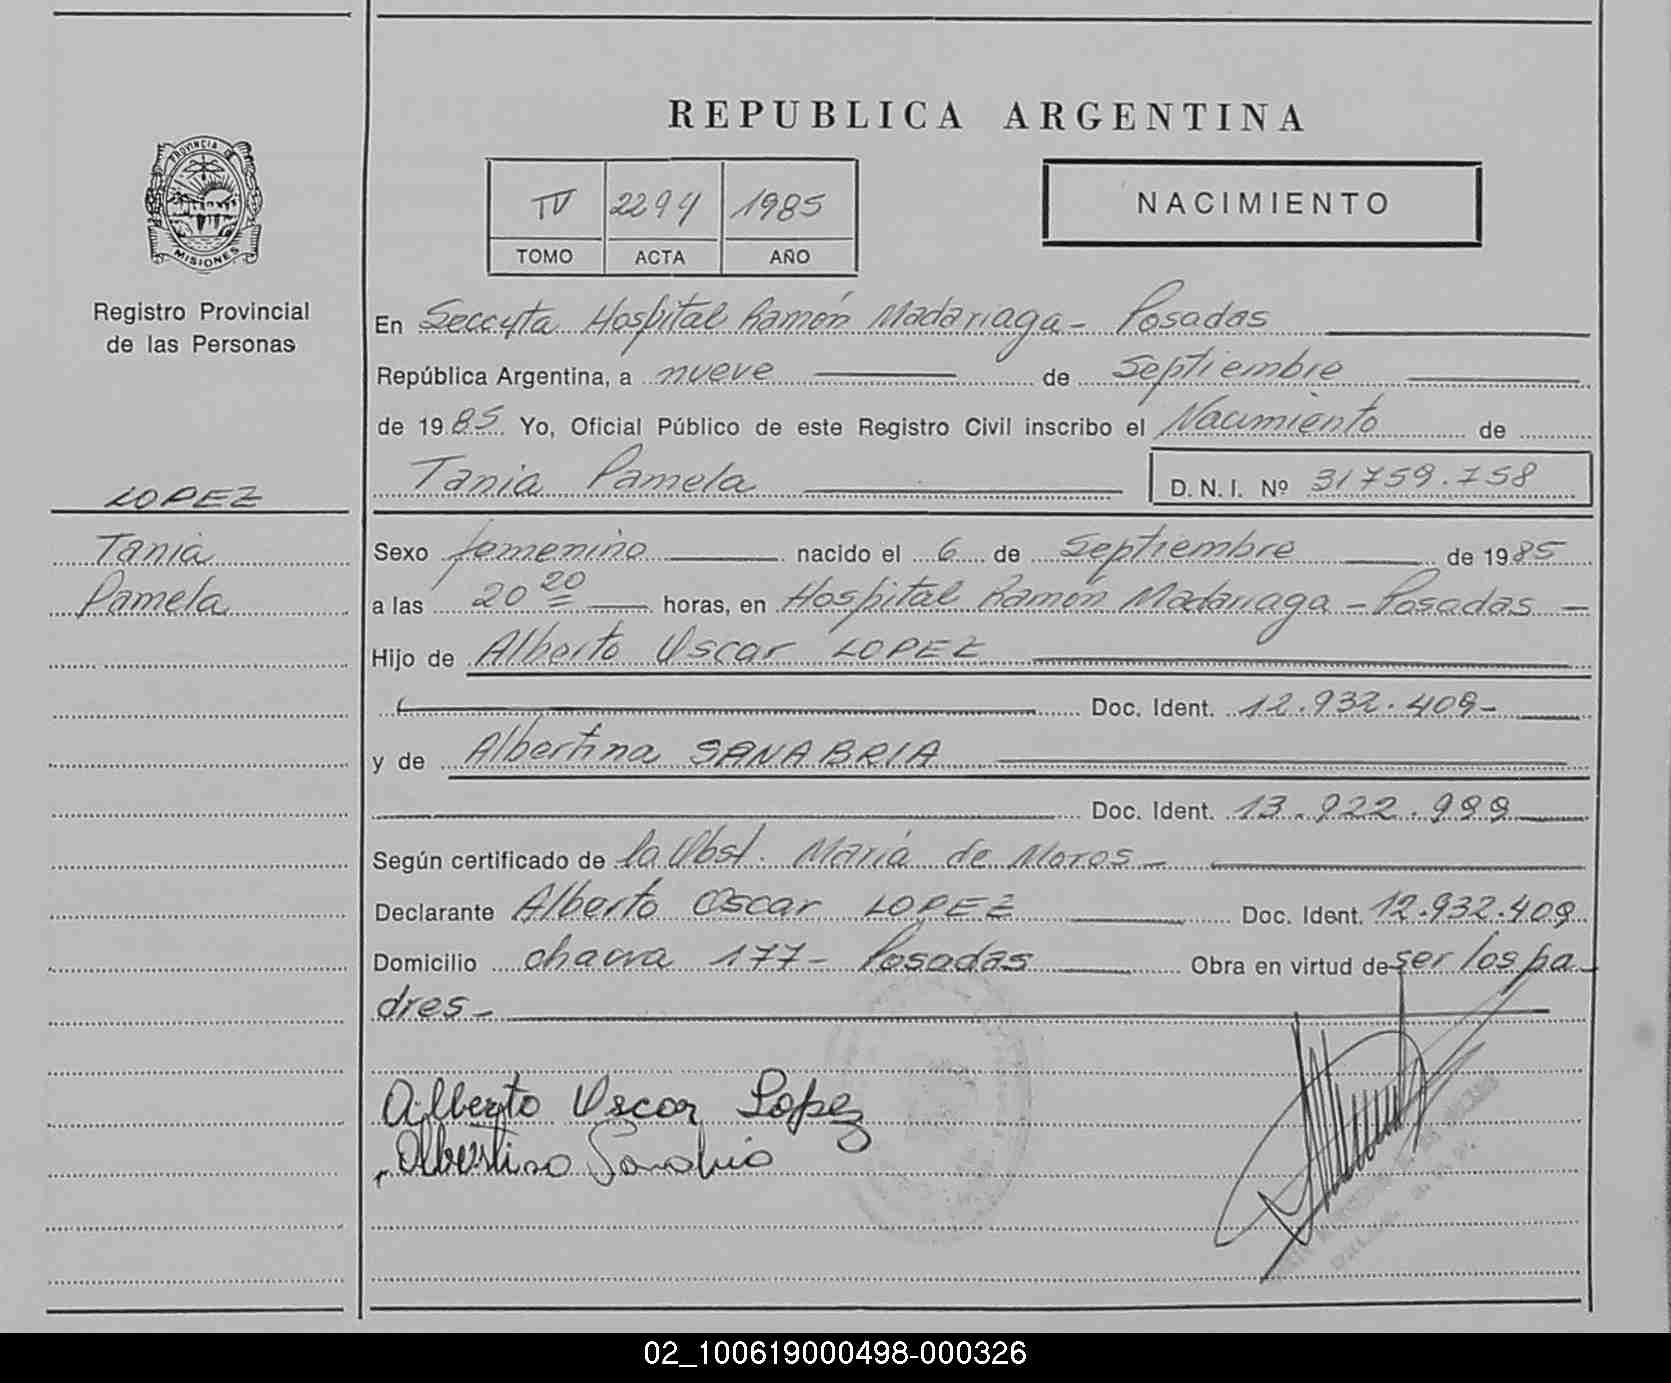 REPUBLICA ARGENTINA
PROVINCIA DE
MISIONES
Registro Provincial
de las Personas
IV 2294 1985
TOMO ACTA AÑO
NACIMIENTO
En Seccyta Hospital Ramón Madariaga - Posadas
República Argentina, a nueve de Septiembre
de 1985 Yo, Oficial Público de este Registro Civil inscribo el Nacimiento de
Tania Pamela D. N. I. Nº 31759.758
LOPEZ
Tania
Pamela
Sexo femenino nacido el 6 de Septiembre de 1985
a las 20 20 horas, en Hospital Ramón Madariaga - Posadas -
Hijo de Alberto Oscar LOPEZ
Doc. Ident. 12.932.409-
y de Albertina SANABRIA
Doc. Ident. 13.922.999
Según certificado de la Obst. María de Moros -
Declarante Alberto Oscar LOPEZ Doc. Ident. 12.932.409
Domicilio chacra 177 - Posadas Obra en virtud de ser los pa
dres -
Alberto Oscar Lopez
Albertina Sanabria
02_100619000498-000326